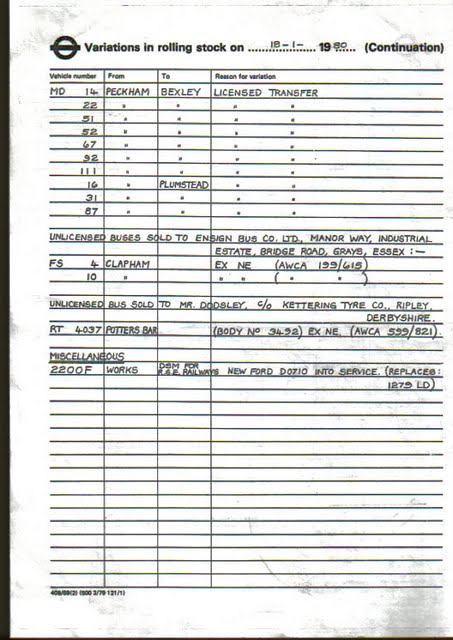 Variations in rolling stock on 18-1- 1980 (Continuation)
Vehicle number From To Reason for variation
MD 14 PECKHAM BEXLEY LICENSED TRANSFER
22 " " " "
51 " " " "
52 " " " "
67 " " " "
92 " " " "
111 " " " "
16 " PLUMSTEAD " "
31 " " " "
87 " " " "
UNLICENSED BUSES SOLD TO ENSIGN BUS CO. LTD., MANOR WAY, INDUSTRIAL
ESTATE, BRIDGE ROAD, GRAYS, ESSEX :—
FS 4 CLAPHAM EX NE (AWCA 199/615)
10 " " " ( " " )
UNLICENSED BUS SOLD TO MR. DODSLEY, C/o KETTERING TYRE CO., RIPLEY,
DERBYSHIRE.
RT 4037 POTTERS BAR (BODY No 3492) EX NE. (AWCA 599/821).
MISCELLANEOUS
2200F WORKS DSM FOR R.S.E. RAILWAYS NEW FORD D0710 INTO SERVICE. (REPLACES:
1279 LD)
408/69(2) (500 3/79 121/1)